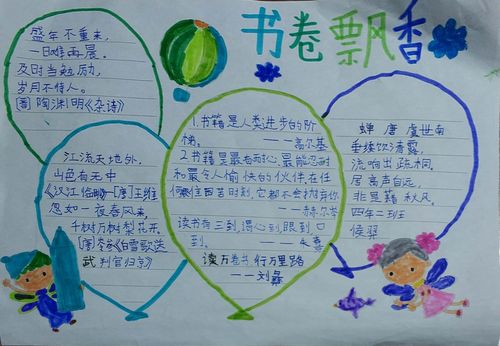 书卷飘香
盛年不重来,
一日难再晨。
及时当勉励,
岁月不待人。
陶渊明《杂诗》
江流天地外,
山色有无中
《汉江临眺》-[唐]王维
忽如一夜春风来,
千树万树梨花开。
《白雪歌送
武判官归京》
1.书籍是人类进步的阶
梯。———高尔基
2.书籍是最有耐心、最能忍耐
和最令人愉快的伙伴,在任
何艰难困苦时刻,它都不会抛弃你
读书有三到,谓心到眼到口
到。———朱熹
读万卷书行万里路
——刘彝
蝉 唐 虞世南
垂緌饮清露,
流响出疏桐。
居高声自远,
非是藉秋风。
四年二班
侯羿